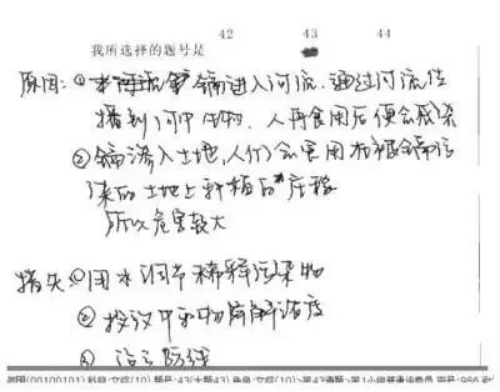 42 43 44
我所选择的题号是
原因:① 镉进入河流,通过河流传
播到河中生物,人再食用后便会感染
②镉渗入土地,人们会食用在被镉污
染的土地上种植的庄稼
所以危害较大
措失:①用水调节稀释污染物
②投放中和物降解浓度
③